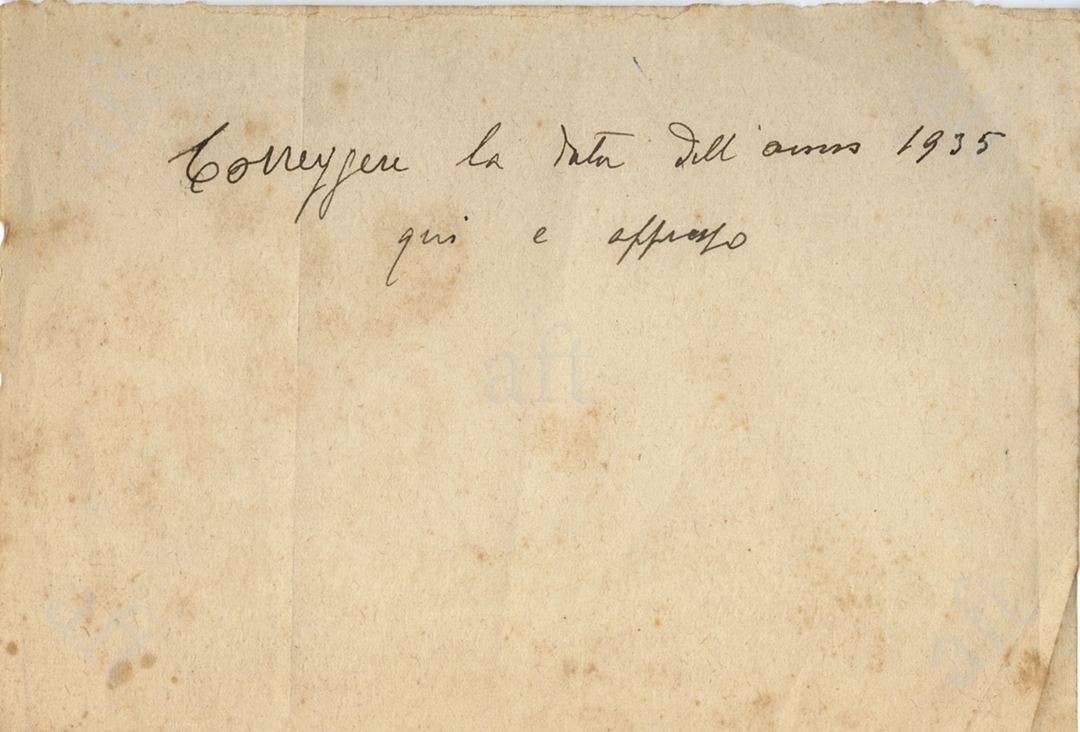 Correggere la data dell'anno 1935
qui e appresso
aft
aft
aft
aft
aft